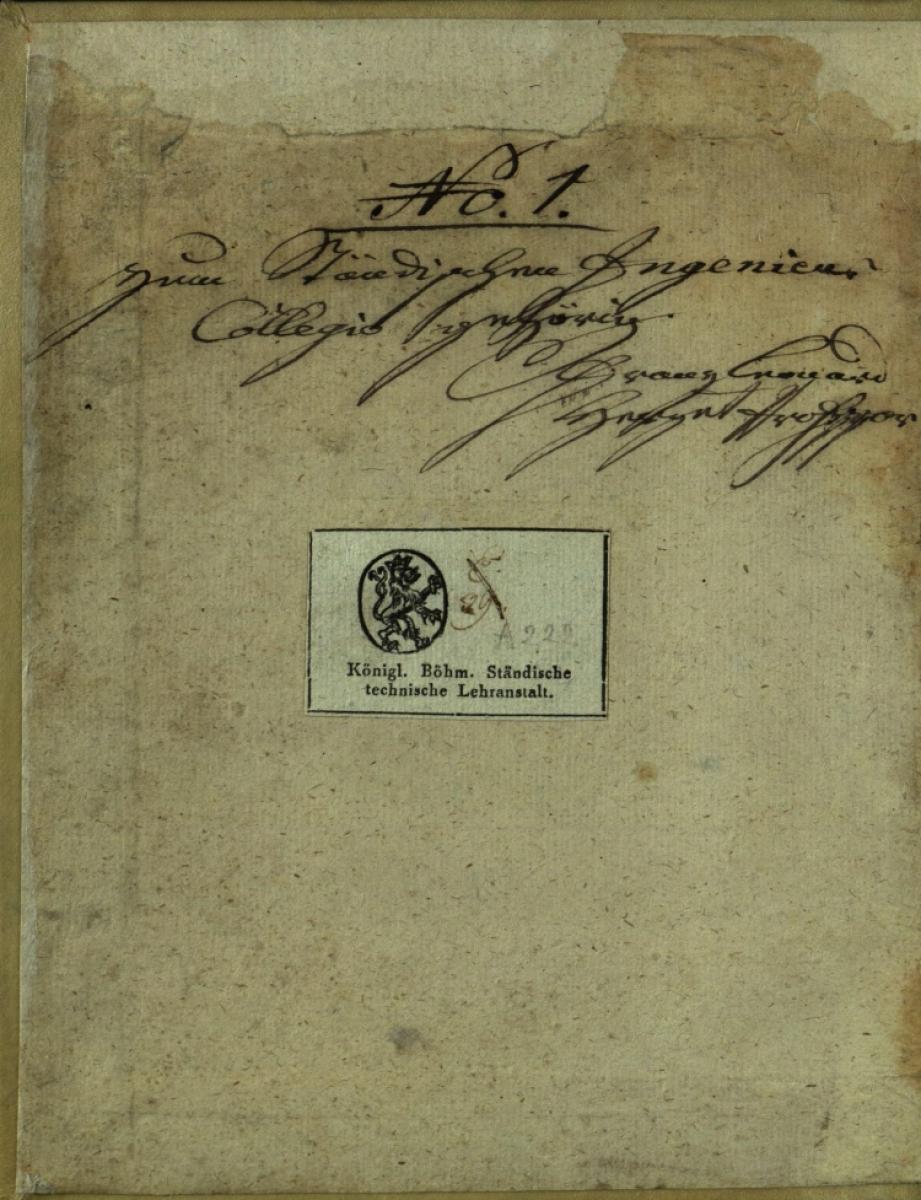 No. 1.
zum Ständischen Ingenieur
Collegio gehörig.
Franz Leonard
Herget Professor
A 222
Königl. Böhm. Ständische
technische Lehranstalt.